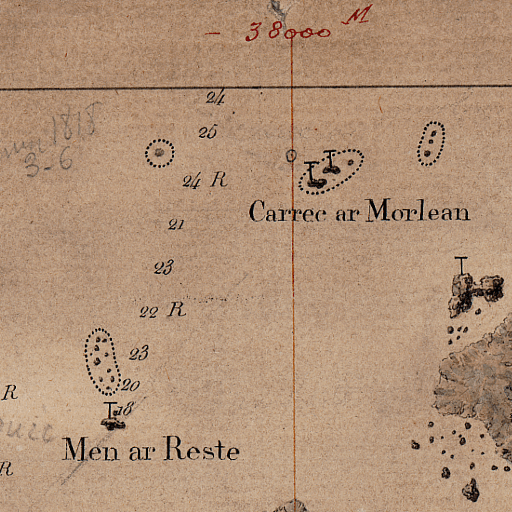 38000 M
24
1818
25
3-6
24 R
Carrec ar Morlean
21
23
22 R
23
20
R
18
Men ar Reste
R